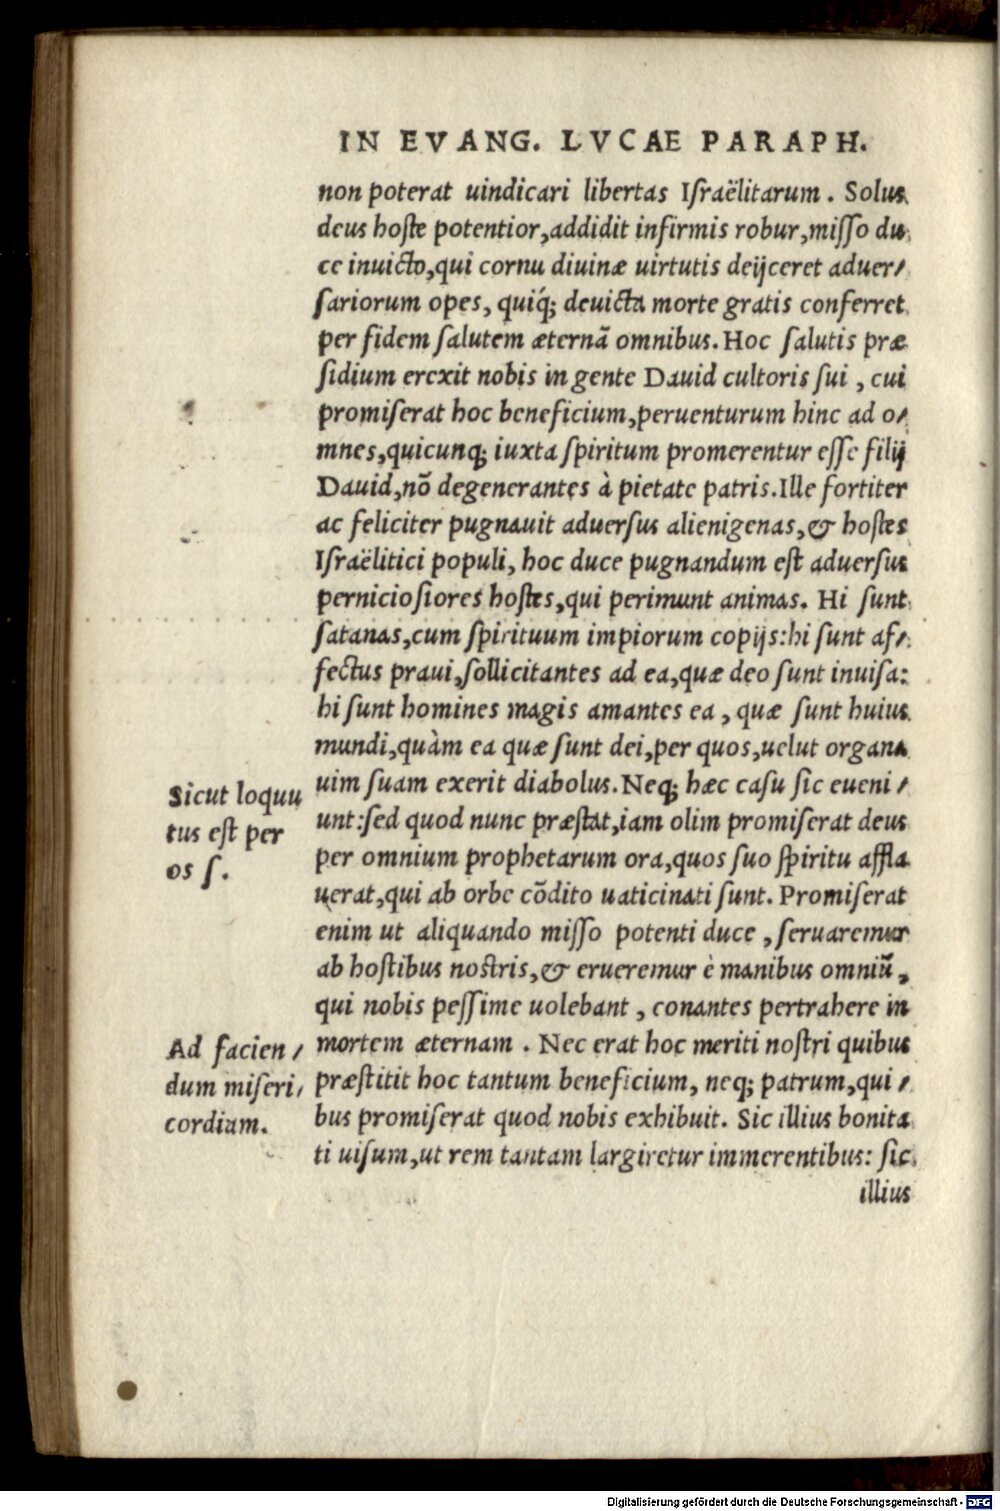 IN EVANG. LVCAE PARAPH.
non poterat uindicari libertas Iſraëlitarum. Solus
deus hoſte potentior, addidit infirmis robur, miſſo du
ce inuicto, qui cornu diuinæ uirtutis deijceret aduer/
ſariorum opes, quiq́; deuicta morte gratis conferret
per fidem ſalutem æternã omnibus. Hoc ſalutis præ
ſidium erexit nobis in gente Dauid cultoris ſui, cui
promiſerat hoc beneficium, peruenturum hinc ad o/
mnes, quicunq; iuxta ſpiritum promerentur eſſe filij
Dauid, nõ degenerantes à pietate patris. Ille fortiter
ac feliciter pugnauit aduerſus alienigenas, & hoſtes
Iſraëlitici populi, hoc duce pugnandum eſt aduerſus
pernicioſiores hoſtes, qui perimunt animas. Hi ſunt
ſatanas, cum ſpirituum impiorum copijs: hi ſunt af/
fectus praui, ſollicitantes ad ea, quæ deo ſunt inuiſa:
hi ſunt homines magis amantes ea, quæ ſunt huius
mundi, quàm ea quæ ſunt dei, per quos, uelut organa
uim ſuam exerit diabolus. Neq; hæc caſu ſic eueni/
unt: ſed quod nunc præſtat, iam olim promiſerat deus
per omnium prophetarum ora, quos ſuo ſpiritu affla
uerat, qui ab orbe cõdito uaticinati ſunt. Promiſerat
enim ut aliquando miſſo potenti duce, ſeruaremur
ab hoſtibus noſtris, & erueremur è manibus omniũ,
qui nobis peſſime uolebant, conantes pertrahere in
mortem æternam. Nec erat hoc meriti noſtri quibus
præſtitit hoc tantum beneficium, neq; patrum, qui/
bus promiſerat quod nobis exhibuit. Sic illius bonita
ti uiſum, ut rem tantam largiretur immerentibus: ſic
illius
Sicut loquu
tus eſt per
os ſ.
Ad facien/
dum miſeri/
cordiam.
Digitalisierung gefördert durch die Deutsche Forschungsgemeinschaft - DFG